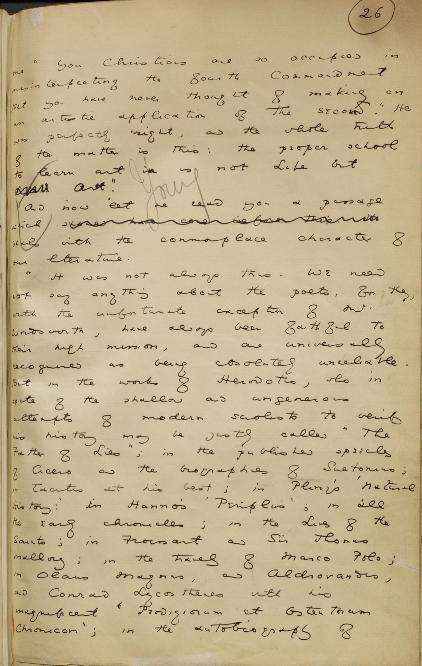 26
me " You Christians are so occupied in
misinterpreting the fourth Commandment
that you have never thought of making an
an artistic application of the second". He
was perfectly right, and the whole truth
of the matter is this: the proper school
to learn art in is not Life but
Art".
And now let me read you a passage
which
deals with the commonplace character of
our literature.
" It was not always thus. We need
not say anything about the poets, for they,
with the unfortunate exception of Mr.
Wordsworth, have always been faithful to
their high mission, and are universally
recognised as being absolutely unreliable.
But in the works of Herodotus, who in
spite of the shallow and ungenerous
attempts of modern sciolists to verify
his history may be justly called "The
Father of Lies"; in the published speeches
of Cicero and the biographies of Suetonius;
in Tacitus at his best; in Pliny's 'Natural
History'; in Hanno's 'Periplus'; in all
the early chronicles; in the Lives of the
Saints; in Froissart and Sir Thomas
Mallory; in the travels of Marco Polo;
in Olaus Magnus, and Aldrovandus,
and Conrad Lycosthenes with his
magnificent 'Prodigiorum et Ostentorum
Chronicon'; in the autobiography of